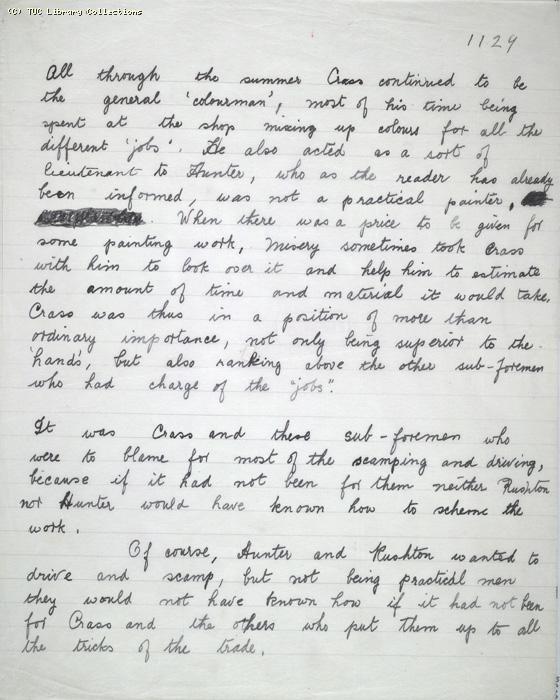 (C) TUC Library Collections
1129
All through the summer Crass continued to be
the general 'colourman', most of his time being
spent at the shop mixing up colours for all the
different 'jobs'. He also acted as a sort of
lieutenant to Hunter, who as the reader has already
been informed, was not a practical painter,
. When there was a price to be given for
some painting work, Misery sometimes took Crass
with him to look over it and help him to estimate
the amount of time and material it would take.
Crass was thus in a position of more than
ordinary importance, not only being superior to the
'hands', but also ranking above the other sub-foremen
who had charge of the "jobs".
It was Crass and these sub-foremen who
were to blame for most of the scamping and driving,
because if it had not been for them neither Rushton
nor Hunter would have known how to scheme the
work.
Of course, Hunter and Rushton wanted to
drive and scamp, but not being practical men
they would not have known how if it had not been
for Crass and the others who put them up to all
the tricks of the trade.